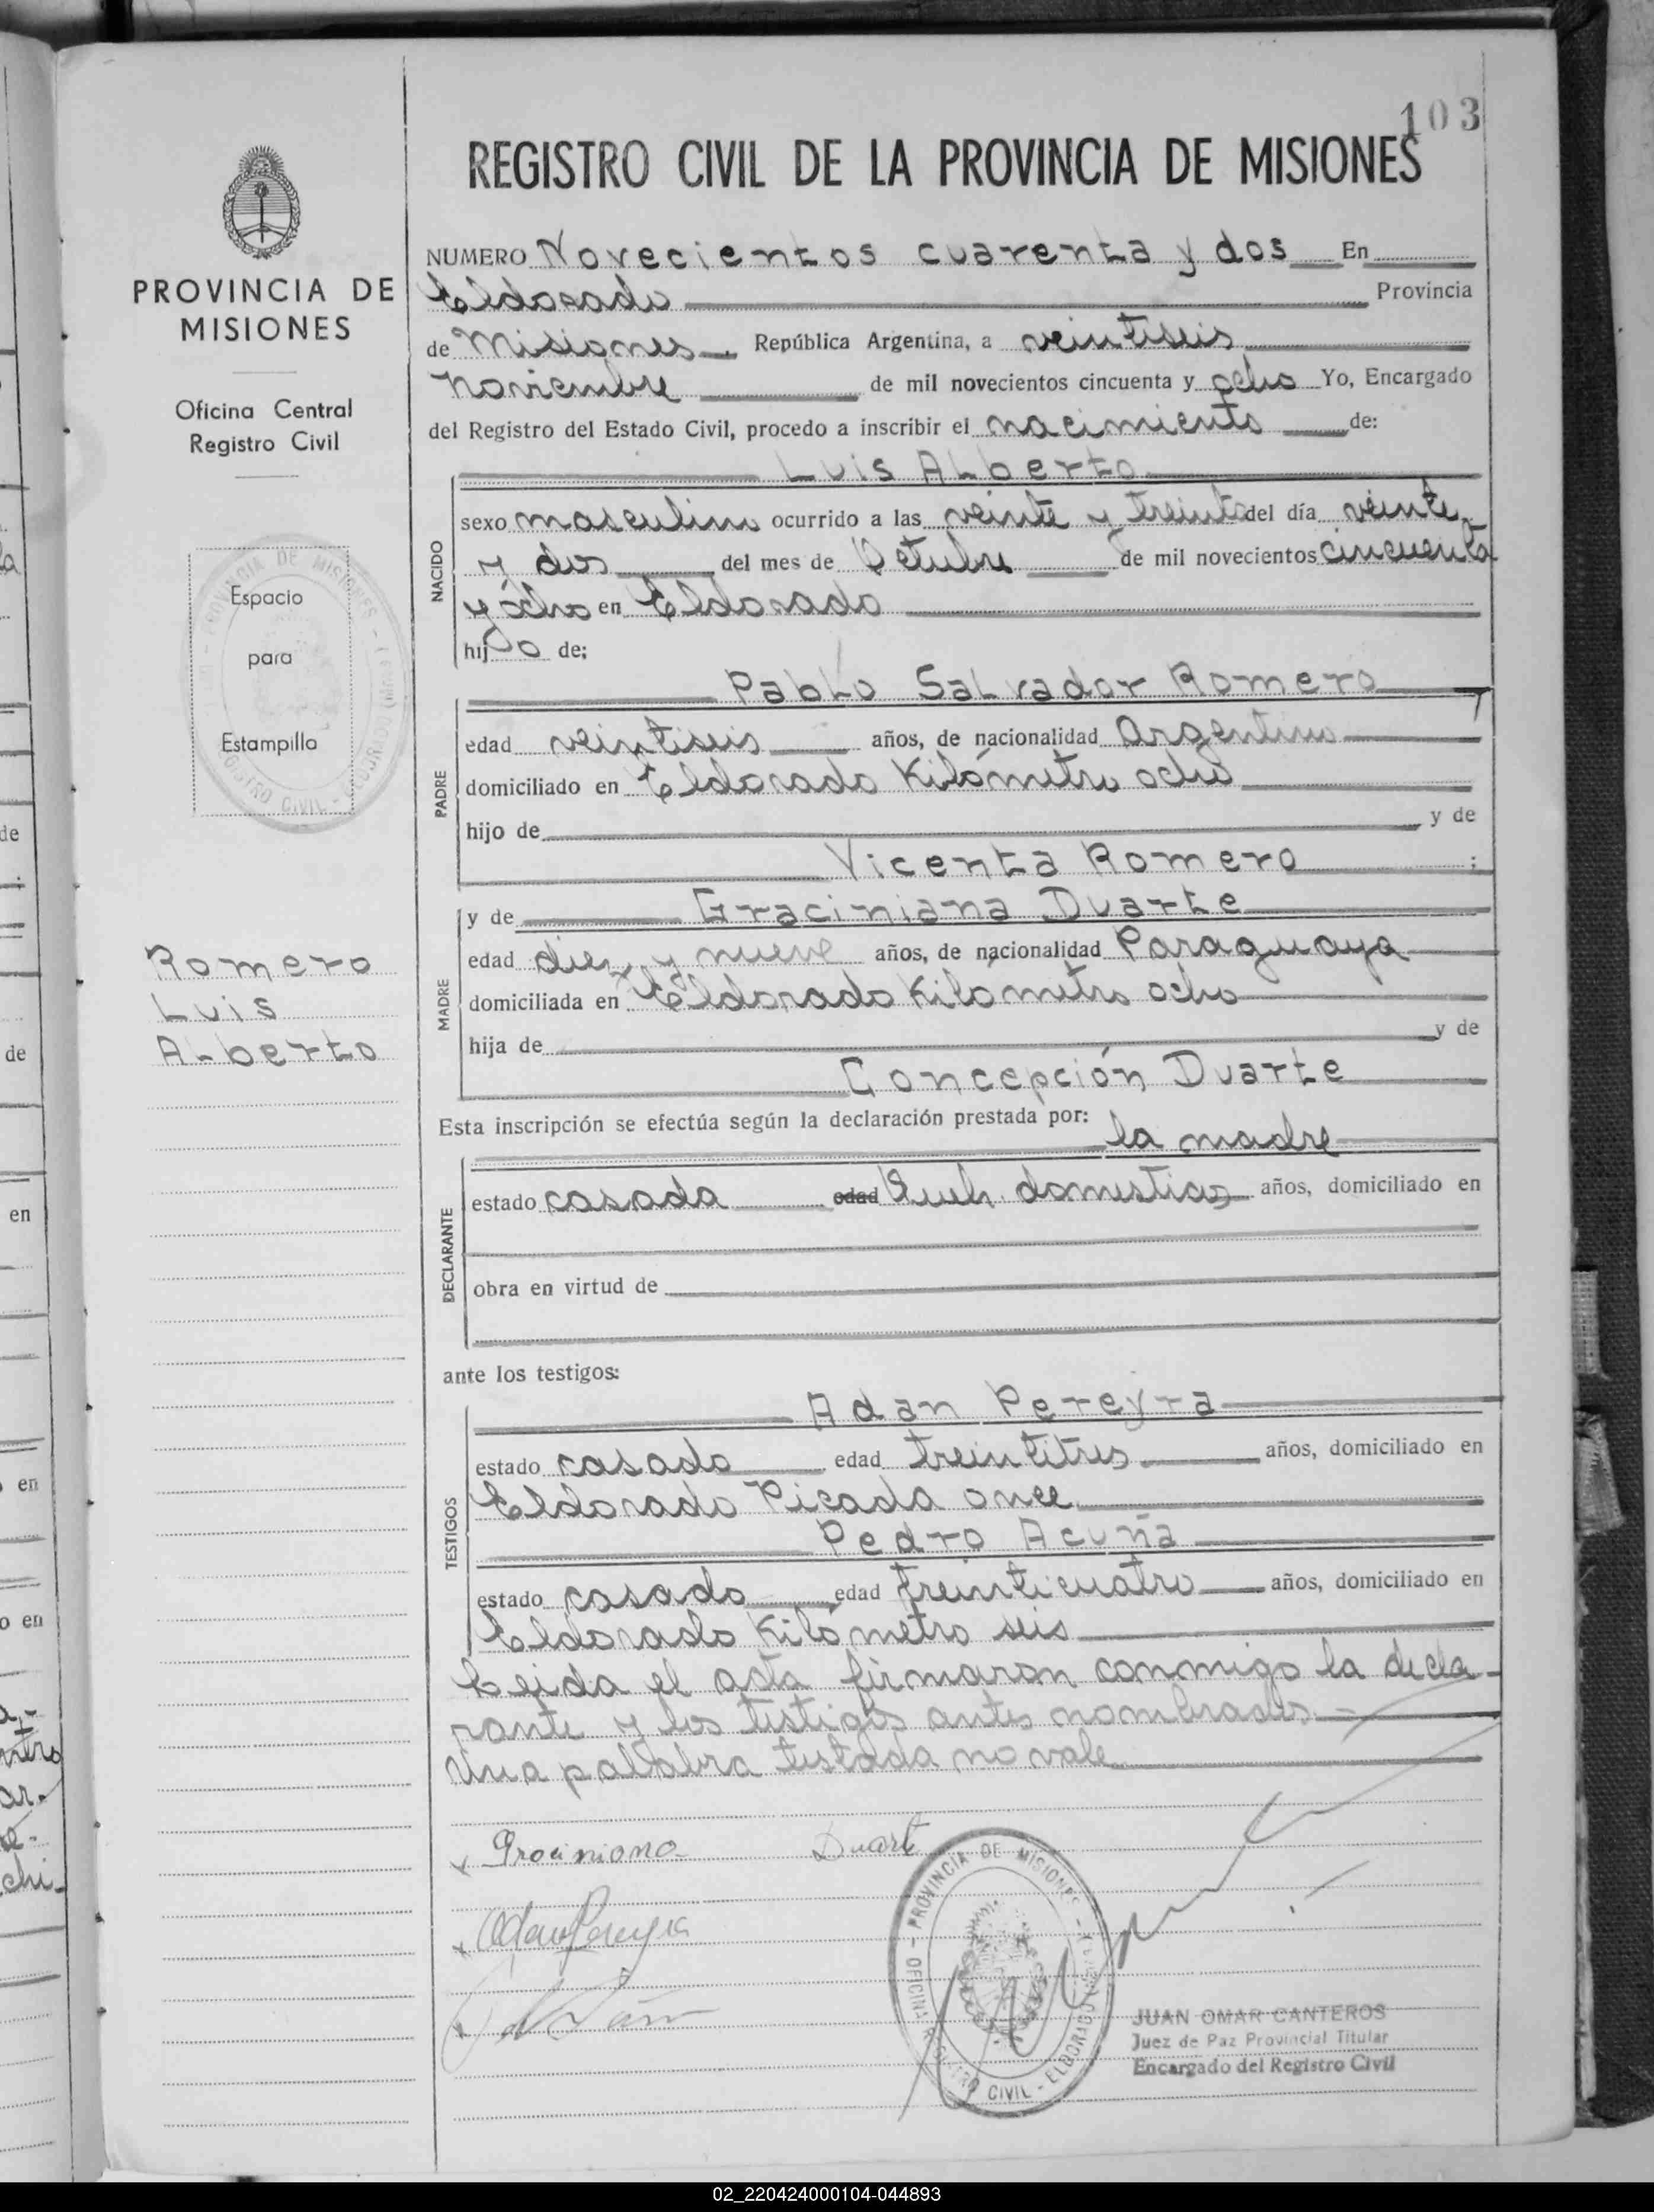 103
REGISTRO CIVIL DE LA PROVINCIA DE MISIONES
PROVINCIA DE
MISIONES
Oficina Central
Registro Civil
Espacio
para
Estampilla
Romero
Luis
Alberto
NUMERO Novecientos cuarenta y dos En
Eldorado Provincia
de Misiones. República Argentina, a veintiseis
Noviembre de mil novecientos cincuenta y ocho Yo, Encargado
del Registro del Estado Civil, procedo a inscribir el nacimiento de:
Luis Alberto
NACIDO
sexo masculino ocurrido a las veinte y treinta del día veinte
y dos del mes de Octubre de mil novecientos cincuenta
y ocho en Eldorado
hijo de:
Pablo Salvador Romero
PADRE
edad veintiseis años, de nacionalidad Argentino
domiciliado en Eldorado Kilómetro ocho
hijo de y de
Vicenta Romero ;
MADRE
y de Graciniana Duarte
edad diez y nueve años, de nacionalidad Paraguaya
domiciliada en Eldorado Kilómetro ocho
hija de y de
Concepción Duarte
Esta inscripción se efectúa según la declaración prestada por:
la madre
DECLARANTE
estado casada edad domesticos años, domiciliado en
obra en virtud de
ante los testigos:
Adan Pereyra
TESTIGOS
estado casado edad treintitres años, domiciliado en
Eldorado Picada once
Pedro Acuña
estado casado edad treinticuatro años, domiciliado en
Eldorado Kilómetro seis
Leida el acta firmaron conmigo la decla-
rante y los testigos antes nombrados.-
Una palabra testada no vale
Graciniana Duarte
Adan Pereyra
PROVINCIA DE MISIONES - ELDORADO
OFICINA REGISTRO CIVIL
JUAN OMAR CANTEROS
Juez de Paz Provincial Titular
Encargado del Registro Civil
02_220424000104-044893